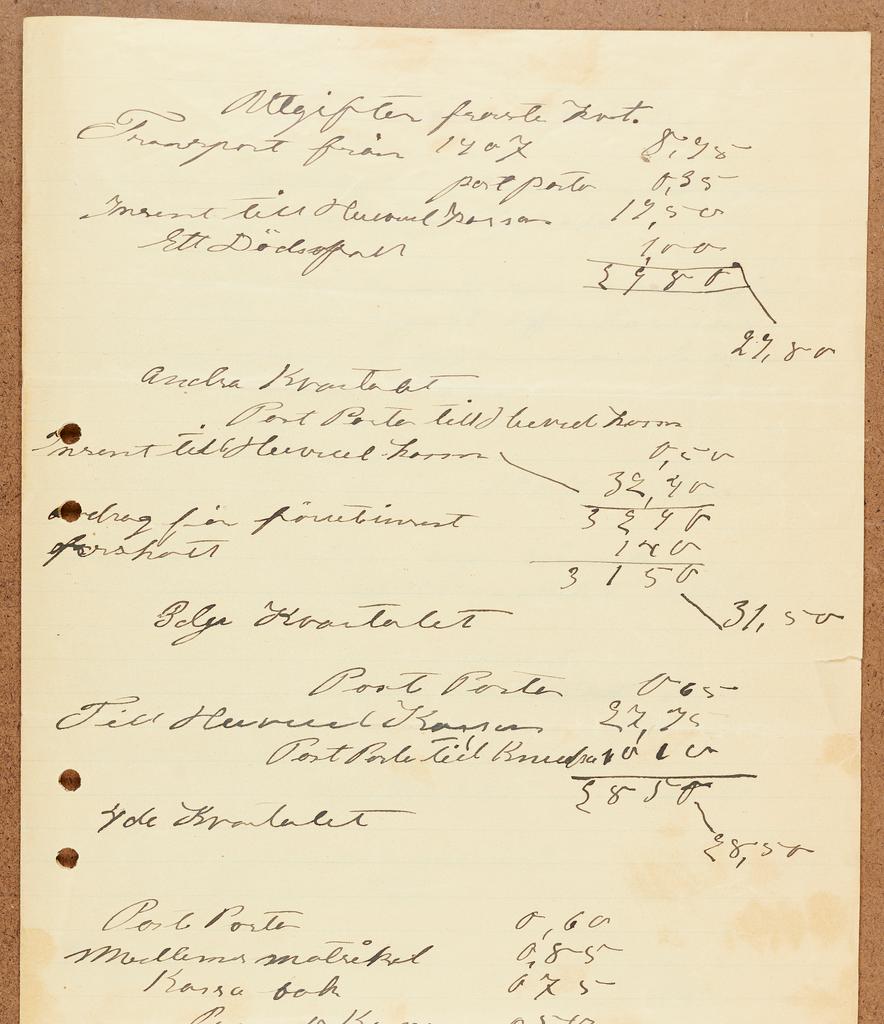 Utgifter förste kvt.
Transport från 1907 8,95
post porto 0,35
Insent till Huvud kassan 17,50
Ett Dödsfall 1,00
2780
27,80
Andra Kvartalet
Post Porto till Huvud kassan
Insent till Huvud kassan 0,50
32,40
avdrag för förut insent 3290
förskott 140
3150
31,50
3dje Kvartalet
Post Porto 0 65
Till Huvud Kassan 27,75
Post Porto till 0 10
2850
28,50
4de Kvartalet
Post Porto 0,60
Medlems matrikel 0,85
Kassa bok 0 75